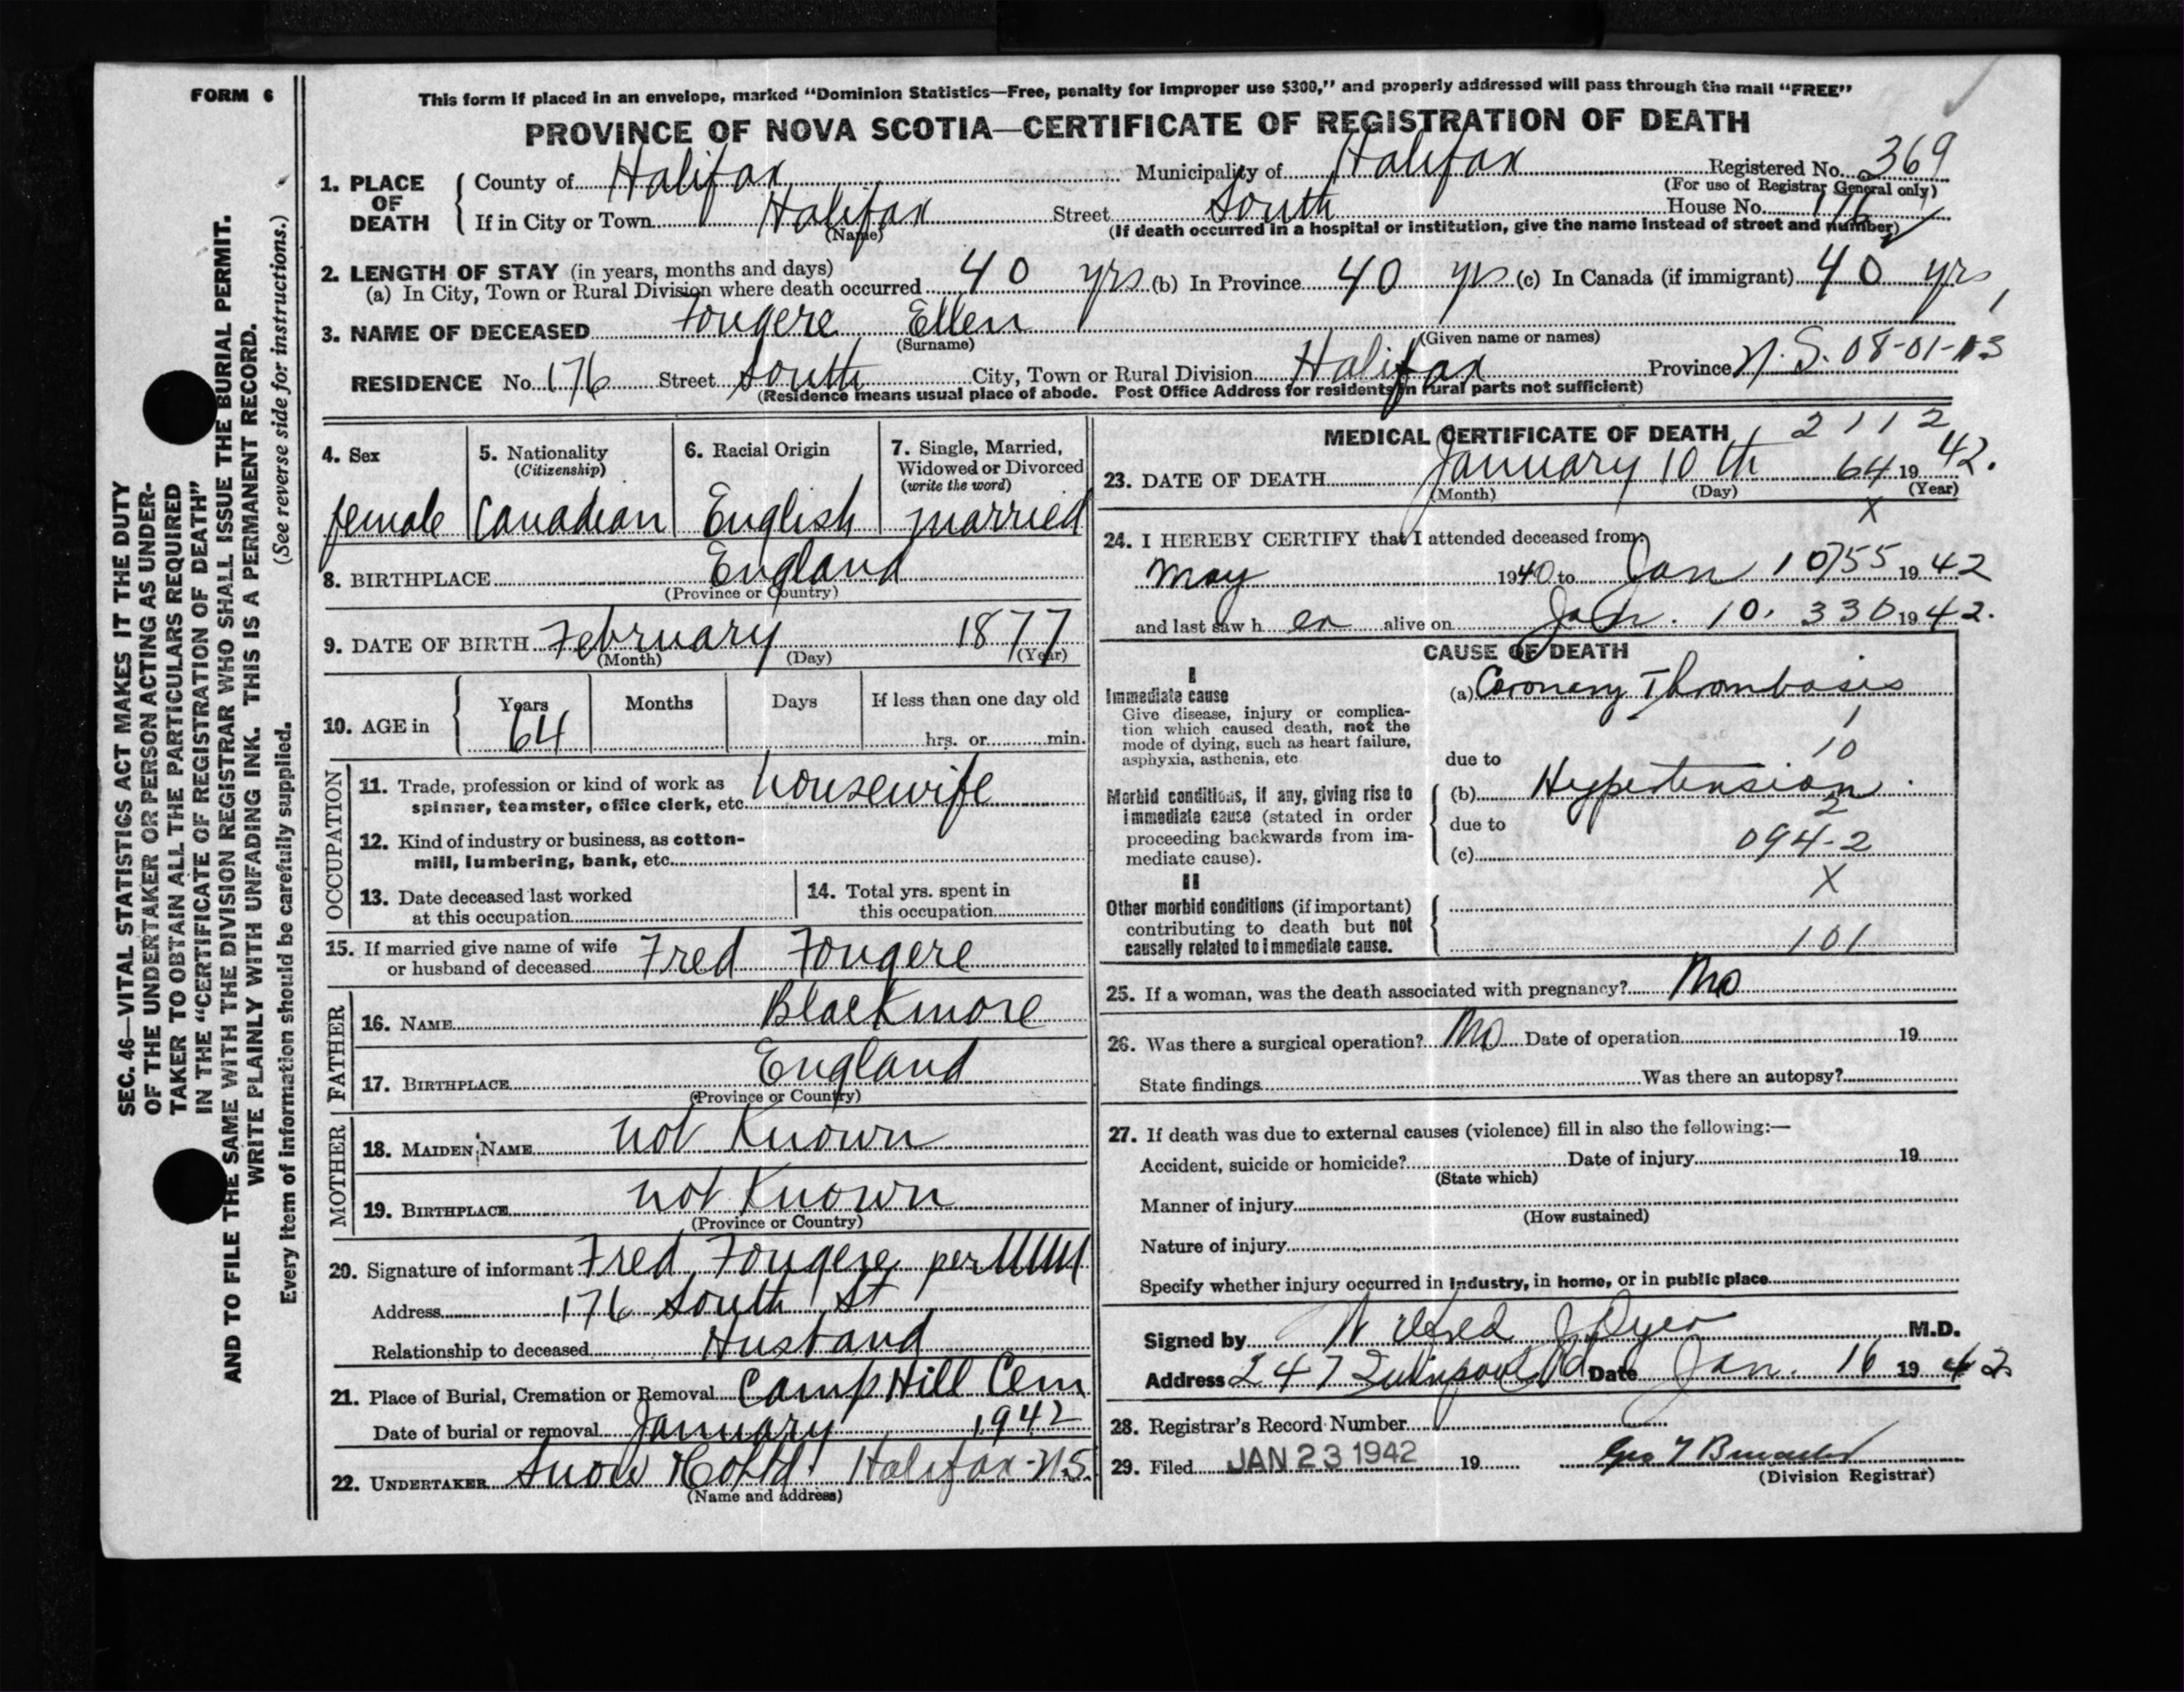 FORM 6
This form if placed in an envelope, marked "Dominion Statistics—Free, penalty for improper use $300," and properly addressed will pass through the mail "FREE"
PROVINCE OF NOVA SCOTIA—CERTIFICATE OF REGISTRATION OF DEATH
1. PLACE OF DEATH
County of Halifax Municipality of Halifax Registered No. 369
(For use of Registrar General only)
If in City or Town Halifax Street South House No. 176
(Name) (If death occurred in a hospital or institution, give the name instead of street and number)
2. LENGTH OF STAY (in years, months and days)
(a) In City, Town or Rural Division where death occurred 40 yrs (b) In Province 40 yrs (c) In Canada (if immigrant) 40 yrs
3. NAME OF DECEASED Fougere Ellen
(Surname) (Given name or names)
RESIDENCE No. 176 Street South City, Town or Rural Division Halifax Province N.S. 08-01-13
(Residence means usual place of abode. Post Office Address for residents in rural parts not sufficient)
4. Sex
female
5. Nationality
(Citizenship)
Canadian
6. Racial Origin
English
7. Single, Married,
Widowed or Divorced
(write the word)
married
8. BIRTHPLACE England
(Province or Country)
9. DATE OF BIRTH February 1877
(Month) (Day) (Year)
10. AGE in Years Months Days If less than one day old
64 hrs. or min.
OCCUPATION
11. Trade, profession or kind of work as
spinner, teamster, office clerk, etc. housewife
12. Kind of industry or business, as cotton-
mill, lumbering, bank, etc.
13. Date deceased last worked
at this occupation
14. Total yrs. spent in
this occupation
15. If married give name of wife
or husband of deceased Fred Fougere
FATHER
16. NAME Blackmore
17. BIRTHPLACE England
(Province or Country)
MOTHER
18. MAIDEN NAME not Known
19. BIRTHPLACE not Known
(Province or Country)
20. Signature of informant Fred Fougere per
Address 176 South St
Relationship to deceased Husband
21. Place of Burial, Cremation or Removal Camp Hill Cem
Date of burial or removal January 1942
22. UNDERTAKER Snow Co Ltd. Halifax-N.S.
(Name and address)
MEDICAL CERTIFICATE OF DEATH 2112
23. DATE OF DEATH January 10th 64 19 42.
(Month) (Day) (Year)
X
24. I HEREBY CERTIFY that I attended deceased from:
May 1940 to Jan 10 755 19 42
and last saw h er alive on Jan. 10. 330 19 42.
CAUSE OF DEATH
I
Immediate cause
Give disease, injury or complica-
tion which caused death, not the
mode of dying, such as heart failure,
asphyxia, asthenia, etc
(a) Coronary Thrombosis
1
10
due to
Morbid conditions, if any, giving rise to
immediate cause (stated in order
proceeding backwards from im-
mediate cause).
(b) Hypertension
2
due to
(c) 094-2
X
II
Other morbid conditions (if important)
contributing to death but not
causally related to immediate cause.
101
25. If a woman, was the death associated with pregnancy? No
26. Was there a surgical operation? No Date of operation 19
State findings Was there an autopsy?
27. If death was due to external causes (violence) fill in also the following:—
Accident, suicide or homicide? Date of injury 19
(State which)
Manner of injury
(How sustained)
Nature of injury
Specify whether injury occurred in industry, in home, or in public place
Signed by Wilfred J Dyer M.D.
Address 247 Quinpool Rd Date Jan. 16 19 42
28. Registrar's Record Number
29. Filed JAN 23 1942 19
(Division Registrar)
SEC. 46—VITAL STATISTICS ACT MAKES IT THE DUTY
OF THE UNDERTAKER OR PERSON ACTING AS UNDER-
TAKER TO OBTAIN ALL THE PARTICULARS REQUIRED
IN THE "CERTIFICATE OF REGISTRATION OF DEATH"
AND TO FILE THE SAME WITH THE DIVISION REGISTRAR WHO SHALL ISSUE THE BURIAL PERMIT.
WRITE PLAINLY WITH UNFADING INK. THIS IS A PERMANENT RECORD.
Every item of information should be carefully supplied. (See reverse side for instructions.)